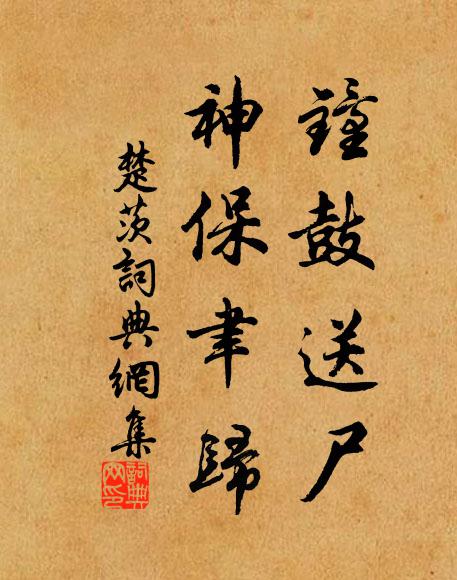 鐘鼓送尸
神保聿歸
楚茨詞典網集
詞典網印